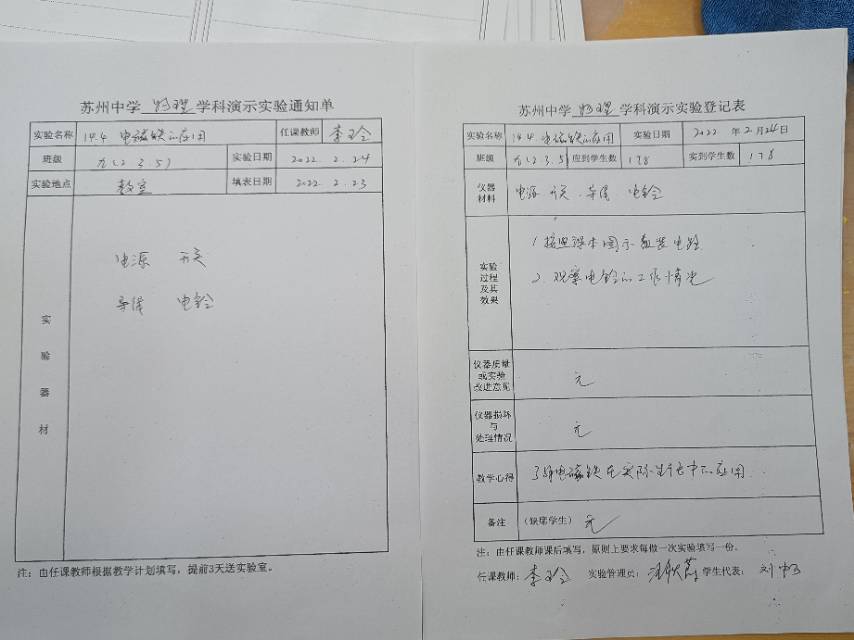 苏州中学 物理 学科演示实验通知单
实验名称 14.4 电磁铁的应用 任课教师 李玲
班级 九(2 3.5) 实验日期 2022. 2. 24
实验地点 教室 填表日期 2022. 2. 23
实验器材
电源 开关
导线 电铃
注：由任课教师根据教学计划填写，提前3天送实验室。
苏州中学 物理 学科演示实验登记表
实验名称 14.4 电磁铁的应用 实验日期 2022 年 2 月 24 日
班级 九(2 3.5) 应到学生数 178 实到学生数 178
仪器材料 电源 开关 导线 电铃
实验过程及其效果
1. 按照课本图示套装电路
2. 观察电铃的工作情况
仪器质量或实验改进意见 无
仪器损坏与处理情况 无
教学心得 了解电磁铁在实际生活中的应用.
备注 (缺席学生) 无
注：由任课教师课后填写，原则上要求每做一次实验填写一份。
任课教师: 李玲 实验管理员: 学生代表: 刘